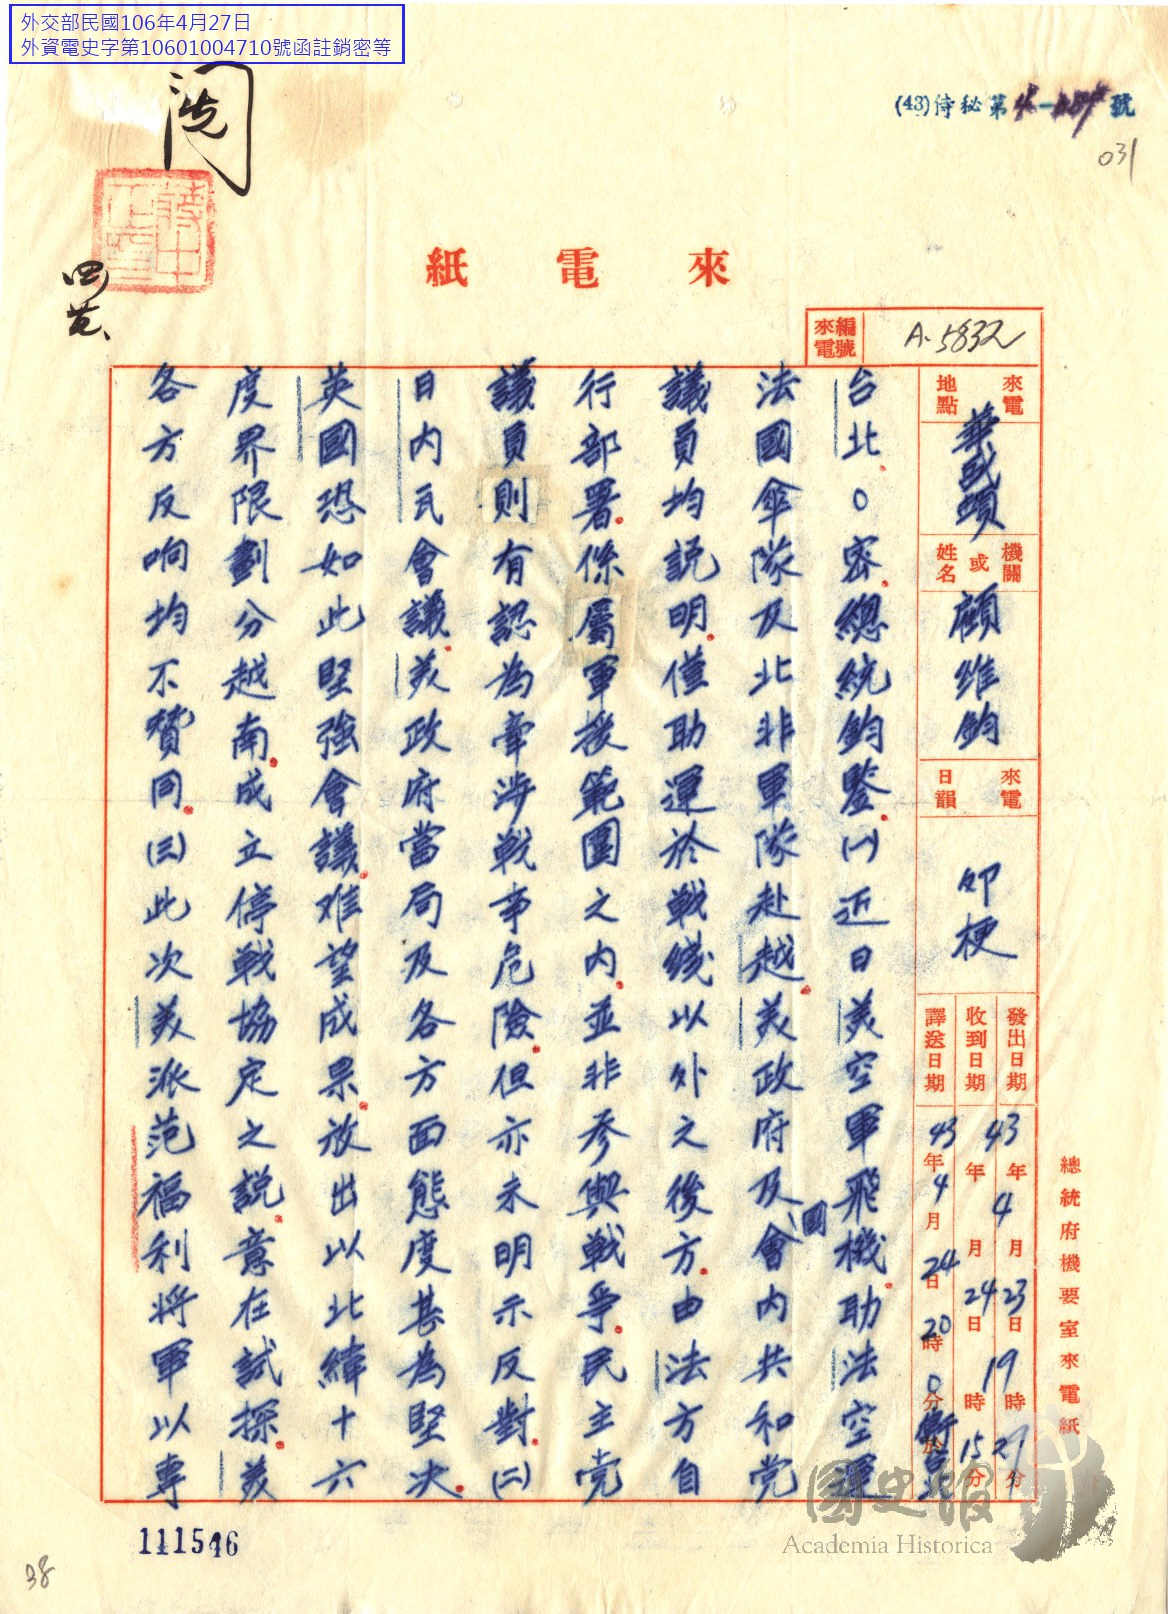 外交部民國106年4月27日
外資電史字第10601004710號函註銷密等
閱
(43)侍秘第 號
031
來電紙
來電編號
A.5832
來電地點
華盛頓
機關或姓名
顧維鈞
來電日韻
卯梗
發出日期
43年4月23日19時27分
收到日期
年 月24日 時15分
譯送日期
43年4月24日20時0分
總統府機要室來電紙
台北。密.總統鈞鑒.(一)近日美空軍飛機.助法空運
法國傘隊及北非軍隊赴越.美政府及國會內共和党
議員均説明.僅助運於戰綫以外之後方.由法方自
行部署.係屬軍援範圍之內.並非參與戰爭.民主党
議員則有認為牽涉戰事危險.但亦未明示反對.(二)
日內瓦會議.美政府當局及各方面態度甚為堅决.
英國恐如此堅強會議.难望成果.放出以北緯十六
度界限劃分越南.成立停戰協定之説.意在試探.美
各方反响均不贊同.(三)此次美派范福利將軍以專
111546
38
國史館
Academia Historica